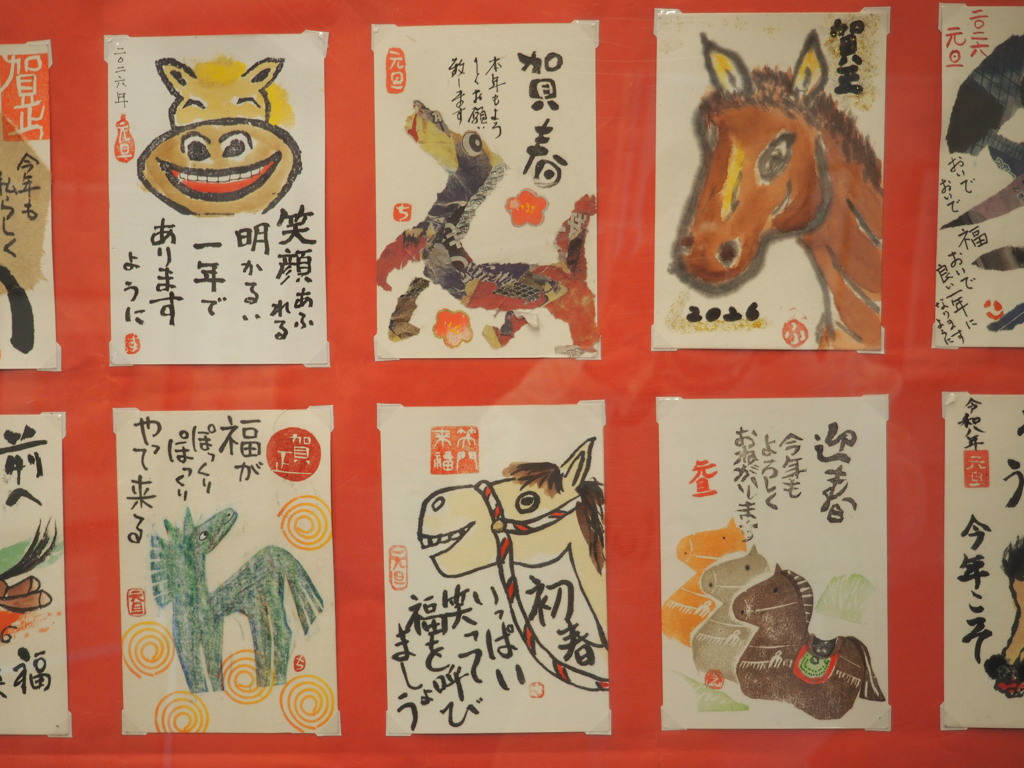 賀正
今年も
私らしく
二〇二六年
元旦
笑顔あふれる
明かるい
一年で
あります
ように
元旦
賀春
本年もよろ
しくお願い
致します
ち
賀正
2026
二〇二六
元旦
おいで
おいで
福
おいで
良い一年に
なります
ように
前へ
福
賀正
福が
ぽっくり
ぽっくり
やって来る
元旦
笑門
来福
元旦
初春
いっぱい
笑って
福を呼び
ましょう
迎春
今年も
よろしく
おねがいします
元旦
令和八年
元旦
今年こそ